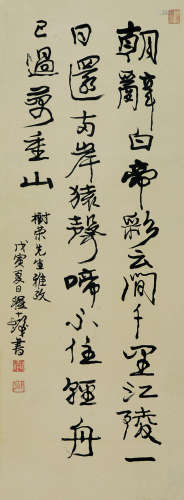 朝辭白帝彩云間千里江陵一
日還兩岸猿聲啼不住輕舟
已過萬重山
樹荣先生雅政
戊寅夏日書